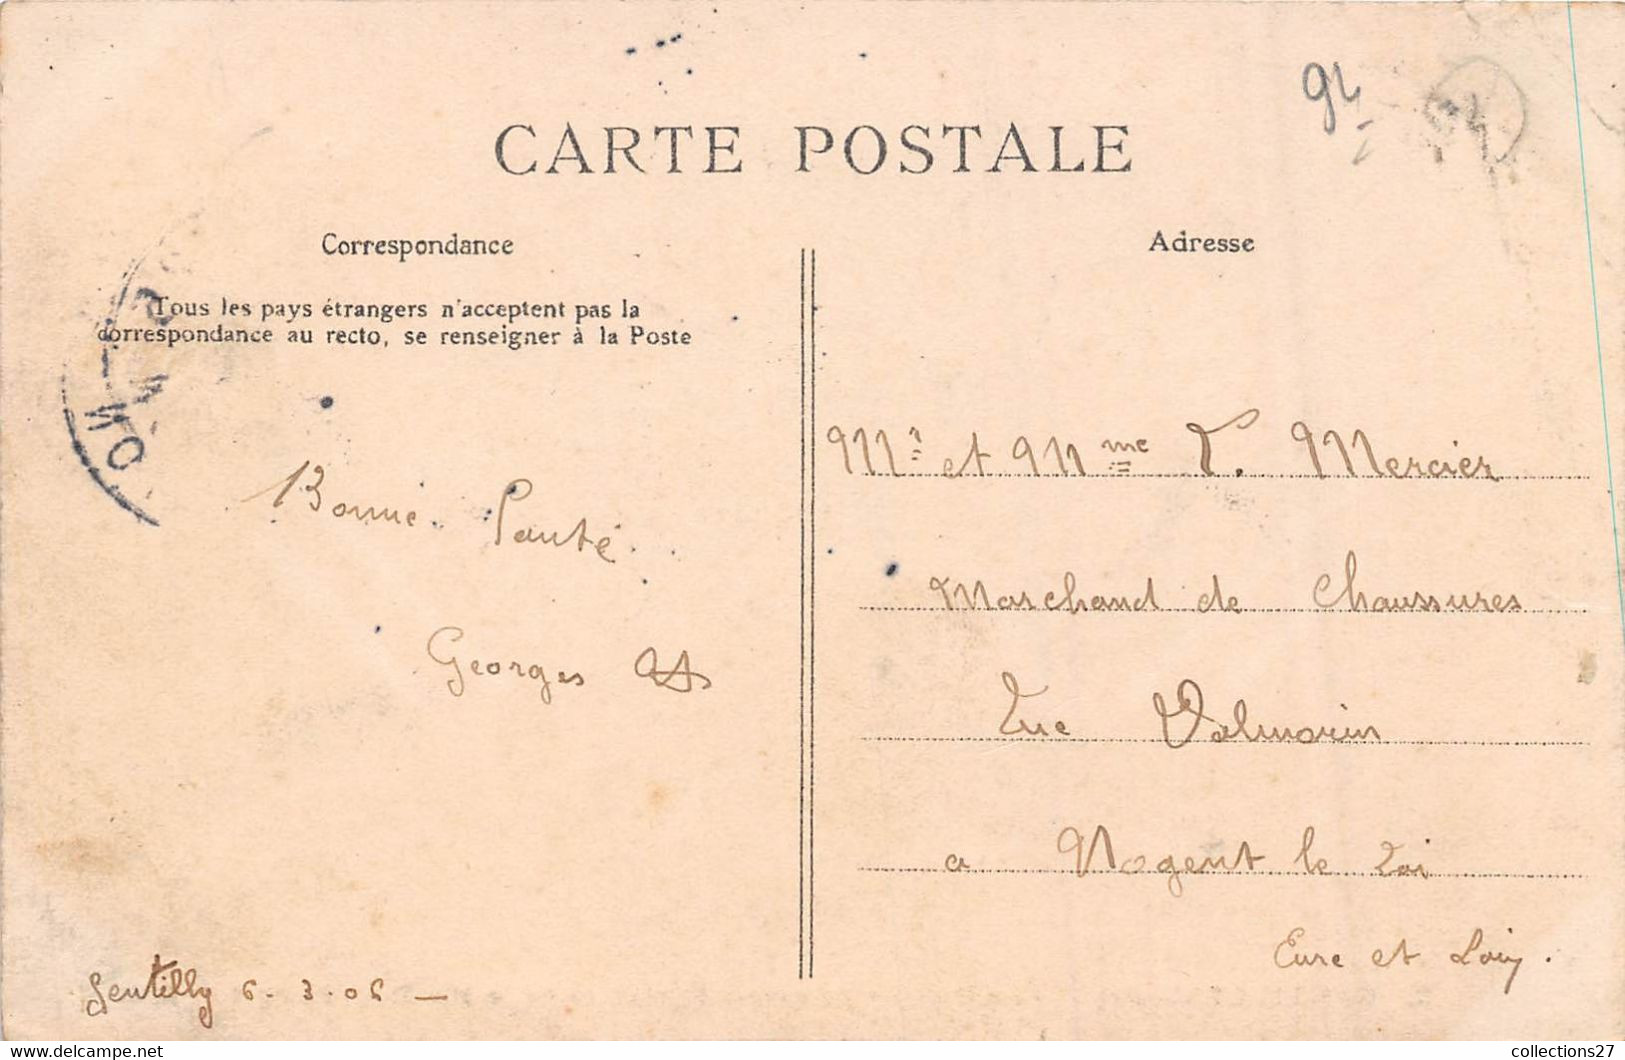 94
CARTE POSTALE
Correspondance
Tous les pays étrangers n'acceptent pas la
correspondance au recto, se renseigner à la Poste
Bonne Santé
Georges
Gentilly 6.3.06 —
Adresse
Mr et Mme V. Mercier
Marchand de Chaussures
Rue Valmorin
a Nogent le Roi
Eure et Loir.
collections27